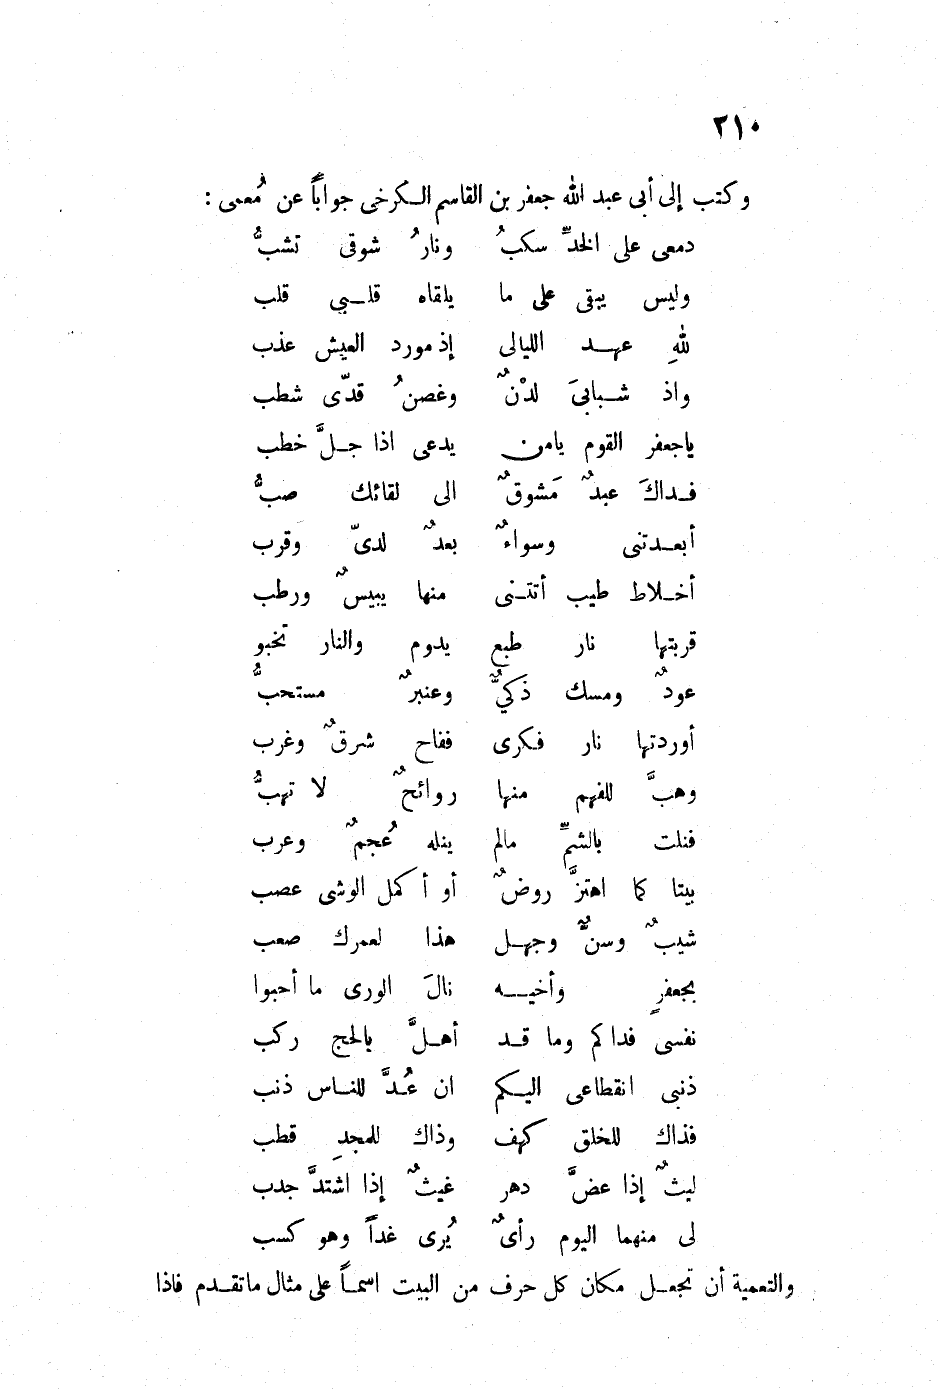 ٢١٠
وكتب إلى أبى عبد الله جعفر بن القاسم الكرخى جواباً عن مُعمى :
دمعى على الخدِّ سكبُ ونارُ شوقى تشبُّ
وليس يبقى على ما يلقاه قلبي قلب
للهِ عهد الليالى إذ مورد العيش عذب
واذ شبابىَ لدْنٌ وغصنُ قدّى شطب
ياجعفر القوم يامن يدعى اذا جلَّ خطب
فداكَ عبدٌ مَشوقٌ الى لقائك صبُّ
أبعدتنى وسواءٌ بعدٌ لدىّ وقرب
أخلاط طيب أتتنى منها يبيسٌ ورطب
قربتها نار طبع يدوم والنار تخبو
عودٌ ومسك ذكيٌّ وعنبرٌ مستحبُّ
أوردتها نار فكرى ففاح شرقٌ وغرب
وهبَّ للفهم منها روائحٌ لا تهبُّ
فنلت بالشمِّ مالم ينله عُجمٌ وعرب
بيتا كما اهتزَّ روضٌ أو أكمل الوشى عصب
شيبٌ وسنٌّ وجهل هذا لعمرك صعب
بجعفرٍ وأخيه نالَ الورى ما أحبوا
نفسى فداكم وما قد أهلَّ بالحج ركب
ذنبى انقطاعى اليكم ان عُدَّ للناس ذنب
فذاك للخلق كهف وذاك للمجدِ قطب
ليثٌ إذا عضَّ دهر غيثٌ إذا اشتدَّ جدب
لى منهما اليوم رأىٌ يُرى غداً وهو كسب
والتعمية أن تجعل مكان كل حرف من البيت اسماً على مثال ماتقدم فاذا